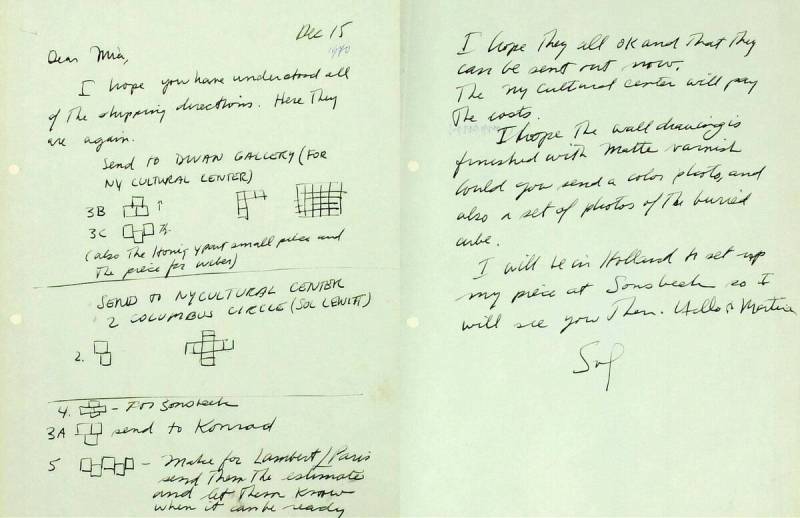 Dec 15
1970
Dear Mia,
I hope you have understood all
of the shipping directions. Here they
are again.
Send to DWAN GALLERY (FOR
NY CULTURAL CENTER)
3B
3C
(also the Honig 4 part small piece and
the piece for Weber)
SEND TO NY CULTURAL CENTER
2 COLUMBUS CIRCLE (SOL LEWITT)
2.
4. - For Sonsbeek
3A send to Konrad
5 - Make for Lambert/Paris
send them the estimate
and let them know
when it can be ready
I hope they all OK and that they
can be sent out now.
The NY Cultural Center will pay
the costs.
I hope the wall drawing is
finished with Matte varnish
Could you send a color photo, and
also a set of photos of the buried
cube.
I will be in Holland to set up
my piece at Sonsbeek so I
will see you then. Hello to Martin
Sol